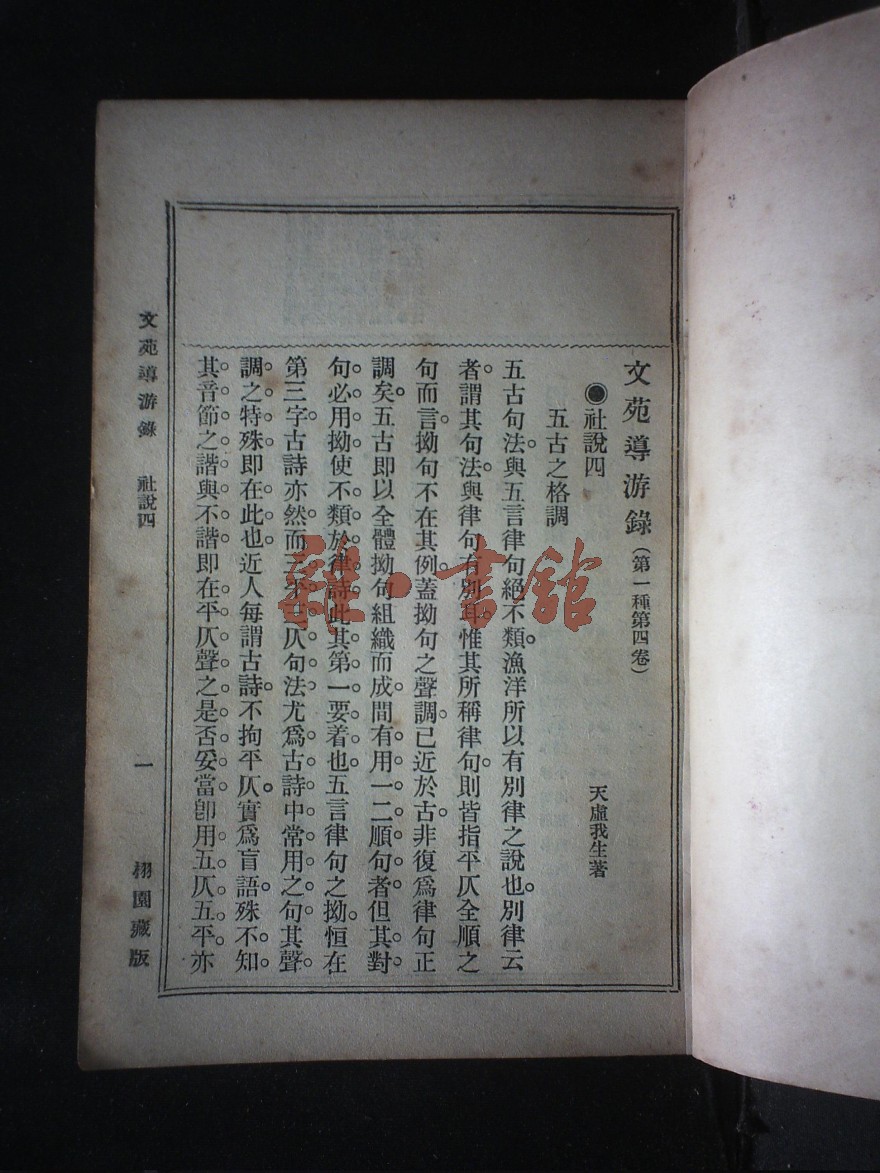 文苑導游錄（第一種第四卷）
天虛我生著
◉社說四
五古之格調
五古句法與五言律句絕不類。漁洋所以有別律之說也。別律云
者。謂其句法。與律句有別耳。惟其所稱律句。則皆指平仄全順之
句而言。拗句不在其例。蓋拗句之聲調。已近於古。非復爲律句正
調矣。五古即以全體拗句組織而成。間有用一二順句者。但其對
句。必用拗。使不類於律詩。此其第一要着也。五言律句之拗。恒在
第三字。古詩亦然。而三平三仄句法。尤爲古詩中常用之句。其聲
調之特殊。即在此也。近人每謂古詩。不拘平仄。實爲盲語。殊不知
其音節之諧與不諧。即在平仄聲之是否妥當。卽用五仄五平。亦
文苑導游錄 社說四 一 栩園藏版
雜·書館